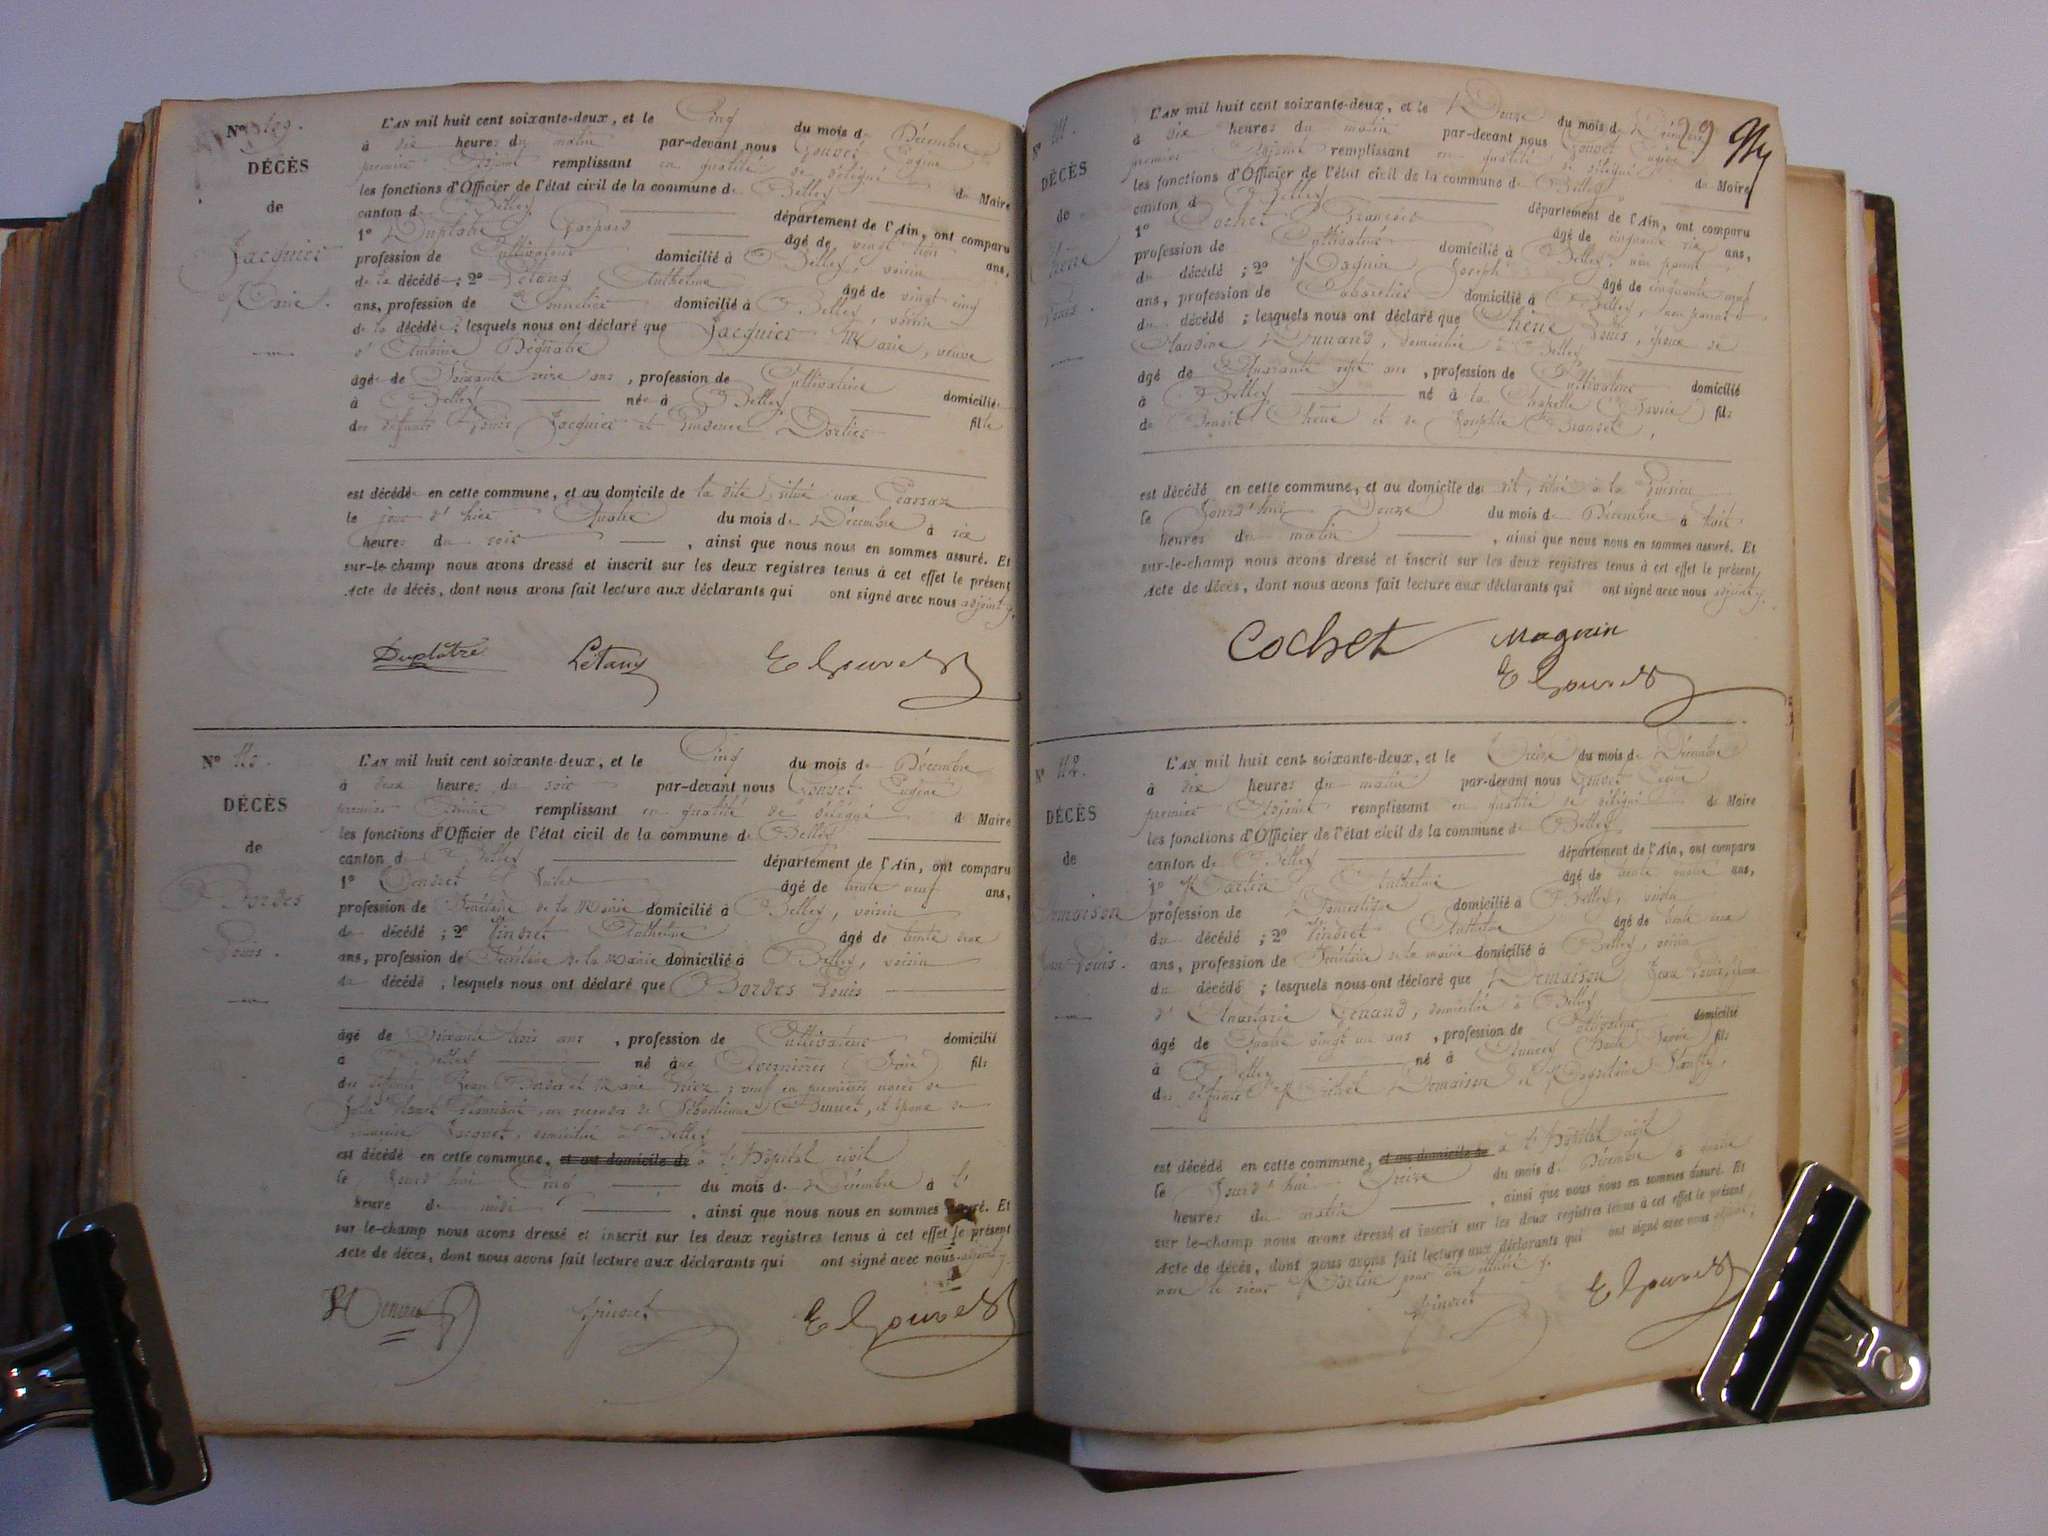 N° 109.
DÉCÈS
de
Jacquier
Marie.
L'AN mil huit cent soixante-deux, et le Cinq du mois de Décembre
à dix heures du matin par-devant nous Gouvet Eugène
premier Adjoint remplissant en qualité de délégué du Maire
les fonctions d'Officier de l'état civil de la commune de Belley
canton de Belley département de l'Ain, ont comparu
1° Duplatre Gaspard âgé de vingt huit ans,
profession de Cultivateur domicilié à Belley, voisin
de la décédée ; 2° Létang Anthelme âgé de vingt cinq
ans, profession de domicilié à Belley, voisin
de la décédée ; lesquels nous ont déclaré que Jacquier Marie, veuve
d'Antoine
âgée de Soixante ans, profession de Cultivatrice domiciliée
à Belley née à Belley fille
des défunts Louis Jacquier et
est décédée en cette commune, et au domicile de la dite, situé aux
le jour d'hier Quatre du mois de Décembre à six
heures du soir , ainsi que nous nous en sommes assuré. Et
sur-le-champ nous avons dressé et inscrit sur les deux registres tenus à cet effet le présent
Acte de décès, dont nous avons fait lecture aux déclarants qui ont signé avec nous adjoint
Duplatre Létang E Gouvet
N° 110.
DÉCÈS
de
Bordes
Louis.
L'AN mil huit cent soixante-deux, et le Cinq du mois de Décembre
à deux heures du soir par-devant nous Gouvet Eugène
premier Adjoint remplissant en qualité de délégué du Maire
les fonctions d'Officier de l'état civil de la commune de Belley
canton de Belley département de l'Ain, ont comparu
1° âgé de trente neuf ans,
profession de Secrétaire de la Mairie domicilié à Belley, voisin
du décédé ; 2° Vindret Anthelme âgé de trente deux
ans, profession de Secrétaire de la Mairie domicilié à Belley, voisin
du décédé ; lesquels nous ont déclaré que Bordes Louis
âgé de Soixante trois ans , profession de Cultivateur domicilié
à Belley né à fils
des défunts Jean Bordes et Marie ; veuf en premières noces de
en secondes de Sébastienne, et époux de
domiciliée à Belley
est décédé en cette commune, et au domicile de à l'hôpital civil
le jourd'hui Cinq du mois de Décembre à l'
heure de midi , ainsi que nous nous en sommes assuré. Et
sur le-champ nous avons dressé et inscrit sur les deux registres tenus à cet effet le présent
Acte de décès, dont nous avons fait lecture aux déclarants qui ont signé avec nous adjoint
Vindret E Gouvet
29
N° 111.
DÉCÈS
de
Chêne
Louis.
L'AN mil huit cent soixante-deux, et le Douze du mois de Décembre
à dix heures du matin par-devant nous Gouvet Eugène
premier Adjoint remplissant en qualité de délégué du Maire
les fonctions d'Officier de l'état civil de la commune de Belley
canton de Belley département de l'Ain, ont comparu
1° Cochet François âgé de cinquante six ans,
profession de Cultivateur domicilié à Belley, non parent
du décédé ; 2° Magnin Joseph âgé de cinquante
ans, profession de Cabaretier domicilié à Belley, non parent
du décédé ; lesquels nous ont déclaré que Chêne Louis, époux de
Claudine Dunand, domiciliée à Belley
âgé de Quarante sept ans , profession de Cultivateur domicilié
à Belley né à la Chapelle (Savoie) fils
de Benoit Chêne et de
est décédé en cette commune, et au domicile du dit, situé à la
le Jourd'hui Douze du mois de Décembre à huit
heures du matin , ainsi que nous nous en sommes assuré. Et
sur-le-champ nous avons dressé et inscrit sur les deux registres tenus à cet effet le présent
Acte de décès, dont nous avons fait lecture aux déclarants qui ont signé avec nous adjoint
Cochet Magnin
E Gouvet
N° 112.
DÉCÈS
de
Demaison
Jean Louis.
L'AN mil huit cent soixante-deux, et le Treize du mois de Décembre
à dix heures du matin par-devant nous Gouvet Eugène
premier Adjoint remplissant en qualité de délégué du Maire
les fonctions d'Officier de l'état civil de la commune de Belley
canton de Belley département de l'Ain, ont comparu
1° Martin Anthelme âgé de trente quatre ans,
profession de Domestique domicilié à Belley, voisin
du décédé ; 2° Vindret Anthelme âgé de trente deux
ans, profession de Secrétaire de la mairie domicilié à Belley, voisin
du décédé ; lesquels nous ont déclaré que Demaison Jean Louis, époux
d'Anastasie Genand, domiciliée à Belley
âgé de Quatre vingt un ans , profession de Cultivateur domicilié
à Belley né à Annecy (Haute Savoie) fils
des défunts Michel Demaison et
est décédé en cette commune, et au domicile de à l'hôpital civil
le Jourd'hui Treize du mois de Décembre à quatre
heures du matin , ainsi que nous nous en sommes assuré. Et
sur le-champ nous avons dressé et inscrit sur les deux registres tenus à cet effet le présent
Acte de décès, dont nous avons fait lecture aux déclarants qui ont signé avec nous adjoint,
non le sieur Martin pour être illitéré
Vindret E Gouvet